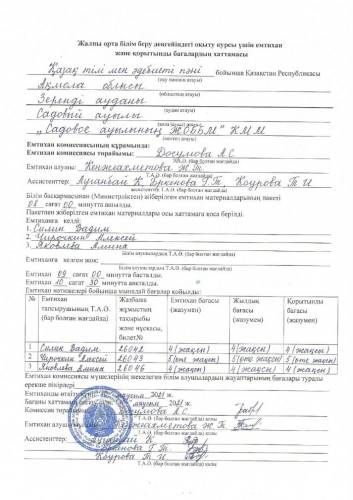 Жалпы орта білім беру деңгейіндегі оқыту курсы үшін емтихан
және қорытынды бағалардың хаттамасы
Қазақ тілі мен әдебиеті пәні бойынша Қазақстан Республикасы
(оқу пәнінің атауы)
Ақмола облысы
(облыстың атауы)
Зеренді ауданы
Садовый ауылы
„Садовое ауылының ЖОББМ" КММ
Емтихан комиссиясының құрамында:
Емтихан комиссиясының төрайымы: Досумова А С
Т.А.Ә. (бар болған жағдайда)
Емтихан алушы: Кенжеахметова Ж.Т.
Т.А.Ә. (бар болған жағдайда)
Ассистенттер: Ауганбай К. Г.Т. Коурова Т И
Т.А.Ә. (бар болған жағдайда)
Білім басқармасынан (Министрліктен) жіберілген емтихан материалдарының пакеті
08 сағат 00 минутта ашылды.
Пакетпен жіберілген емтихан материалдары осы хаттамаға қоса берілді.
Емтиханға келді:
1. Силин Вадим
2. Чирочкин Алексей
3. Яковлева Алина
Емтиханға келген жоқ:
Емтихан 09 сағат 00 минутта басталды.
Емтихан 10 сағат 30 минутта аяқталды.
Емтихан нәтижелері бойынша мынадай бағалар қойылды:
№ Емтихан тапсырушының Т.А.Ә. (бар болған жағдайда) Жазбаша жұмыстың тақырыбы және нұсқасы, билет№ Емтихан бағасы (жазумен) Жылдық бағасы (жазумен) Қорытынды бағасы (жазумен)
1 Силин Вадим 26042 4 (жақсы) 4 (жақсы) 4 (жақсы)
2 Чирочкин Алексей 26043 5 (өте жақсы) 5 (өте жақсы) 5 (өте жақсы)
3 Яковлева Алина 26046 4 (жақсы) 4 (жақсы) 4 (жақсы)
Емтихан комиссиясы мүшелерінің жекелеген білім алушылардың жауаптарының бағалары туралы
ерекше пікірлері
Емтиханды өткізу 2021 ж.
Бағаны хаттамаға 2021 ж.
Комиссия Досумова А.С.
Т.А.Ә. (бар болған жағдайда) қолы
Емтихан Кенжеахметова Ж Т.
Т.А.Ә. (бар болған жағдайда) қолы
Ассистенттер: Ауганбай К.
Г.Т.
Коурова Т И
Т.А.Ә. (бар болған жағдайда) қолы